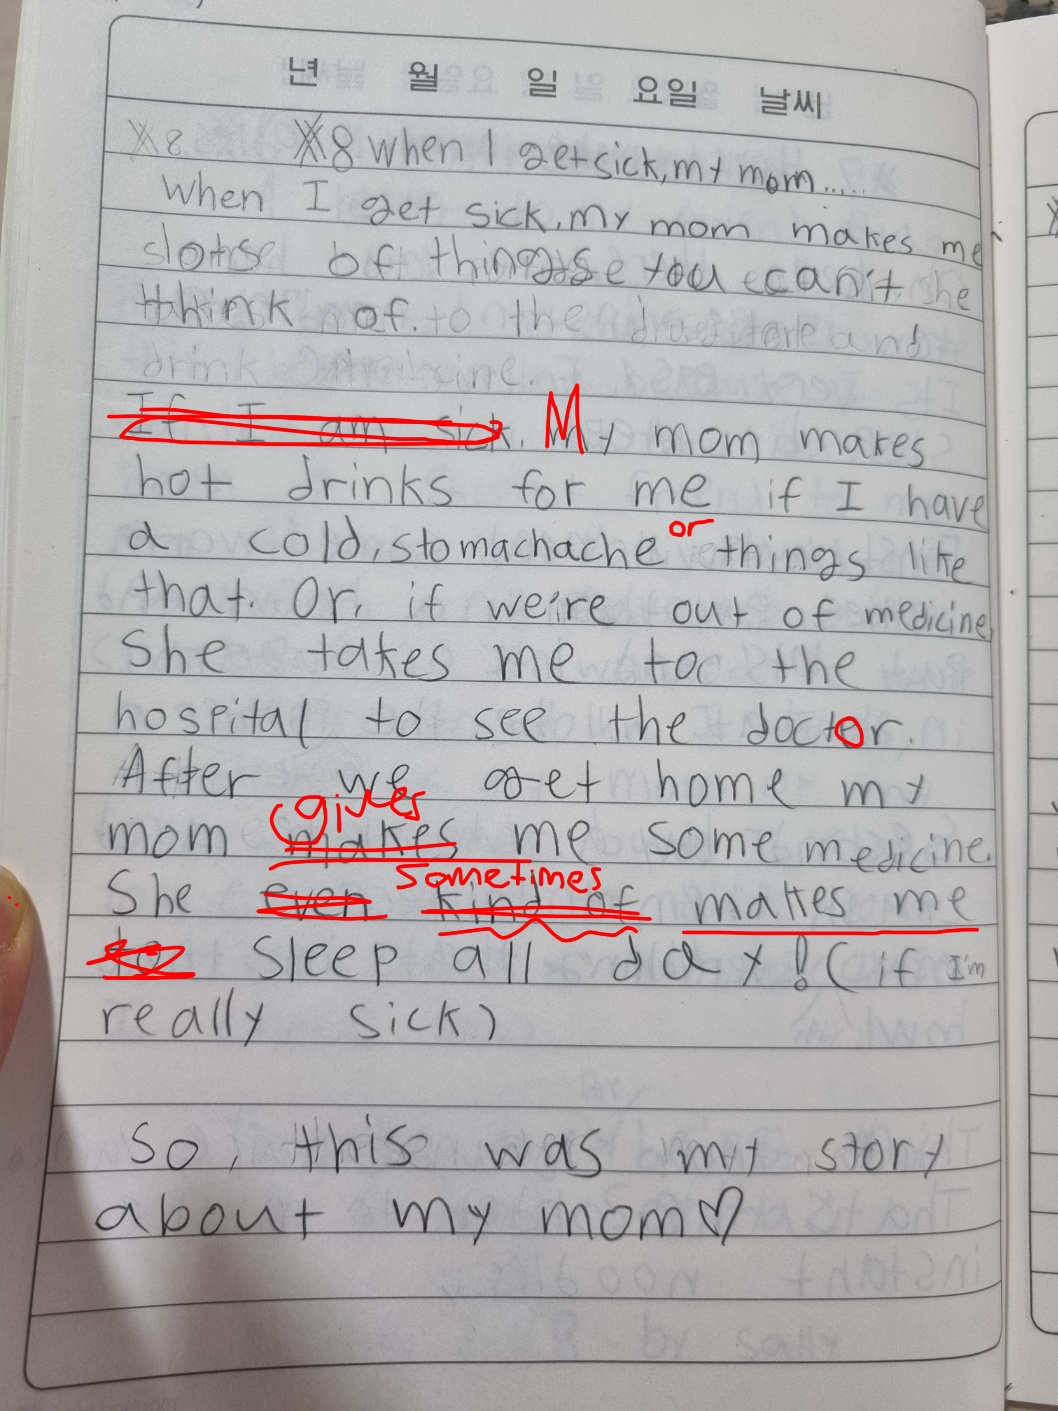 년 월 일 요일 날씨
※8 ※8 when I get sick, my mom.....
When I get sick, my mom makes me
of things you can't she
think of. to the drugstore and
drink medicine.
If I am sick. My mom makes
hot drinks for me if I have
a cold, stomachache or things like
that. Or, if we're out of medicine
She takes me to the
hospital to see the doctor.
After we get home my
gives
mom makes me some medicine.
sometimes
She even kind of makes me
to sleep all day! (if I'm
really sick)
So, this was my story
about my mom♡